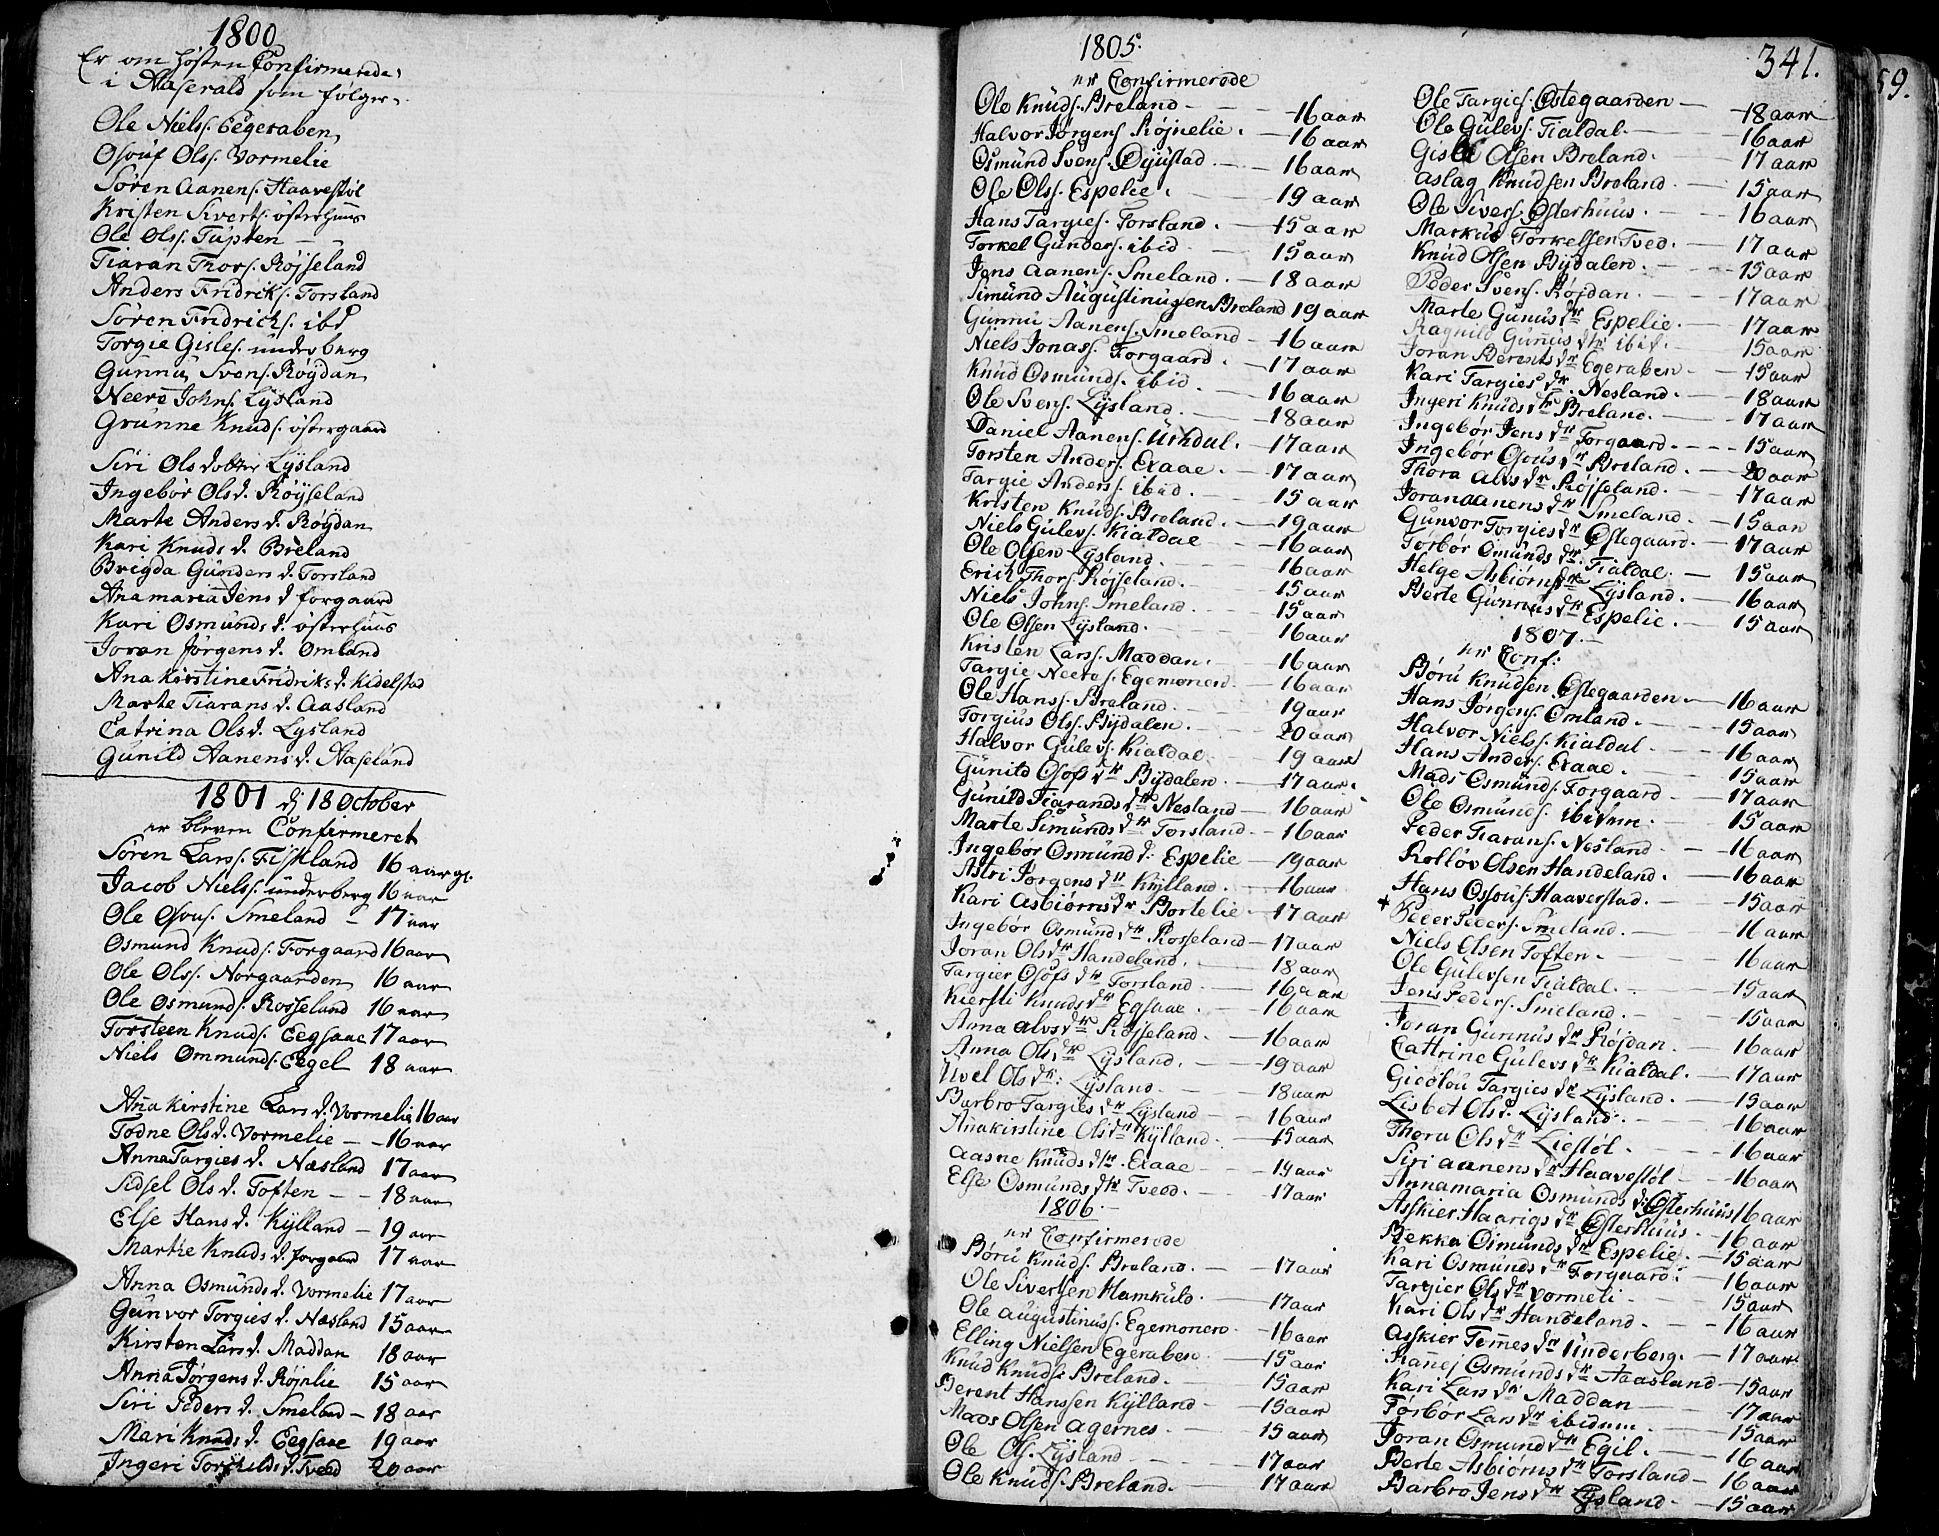 1800
Er om høsten Confirmerede
i Aaserald som følger
Ole Niels. Eegeraben
Osouf Ols. Vormelie
Søren Aanens. Haavestøl
Kristen Siverts. østerhuus
Ole Ols. Tupten —
Tiaran Thors. Røjseland
Anders Fridriks. Torsland
Søren Fridrichs. ibd
Torgie Gisles. underberg
Gunnu Svens. Røydan
Neere Johns. Lysland
Grunne Knuds. østergaard
Siri Ols dotter Lysland
Ingebør Ols d. Røyseland
Marte Anders d. Røydan
Kari Knuds d. Breland
Brigda Gunders d. Torsland
Anamaria Jens d forgaard
Kari Osmunds d. østerhuus
Joran Jørgens d. Omland
Ana Kirstine Fridriks d. Kidelstad
Marte Tiarans d. Aasland
Catrina Ols d. Lysland
Gunild Aanens d. Aaseland
1801 dj 18 October
er bleven Confirmeret
Søren Lars. Fiskland 16 aar gl.
Jacob Niels. underberg 16 aar
Ole Osous. Smeland — 17 aar
Osmund Knuds. Forgaard 16 aar
Ole Ols. Norgaarden 16 aar
Ole Osmunds. Rosseland 16 aar
Torsteen Knuds. Eegsaae 17 aar
Niels Ommunds. Eegel 18 aar
Aña Kirstine Lars d. Vormelie 16 aar
Todne Ols d. Vormelie — 16 aar
Anna Targies d. Næsland 17 aar
Sidsel Ols d. Toften — 18 aar
Else Hans d. Kylland — 19 aar
Marthe Knuds d. forgaard 17 aar
Anna Osmunds d. Vormelie 17 aar
Gunvor Torgies d. Næsland 15 aar
Kirsten Lars d. Maddan 18 aar
Anna Jørgens d. Røjnlie 15 aar
Siri Peders d. Smeland — 18 aar
Mari Knuds d. Eegsaae 19 aar
Ingeri Torkilds d. Tveed 20 aar
1805.
er Confirmerede
Ole Knuds. Breland — 16 aar
Halvor Jørgens Røjnelie. — 16 aar
Osmund Svens. Øyustad — 16 aar
Ole Ols. Espelie. — 19 aar
Hans Targies. Torsland. — 15 aar
Torkel Gunders. ibid. — 15 aar
Jens Aanens. Smeland. — 18 aar
Simund Augustinusen Breland 19 aar
Gunnu Aanens. Smeland — 16 aar
Niels Jonas. Forgaard. — 17 aar
Knud Osmunds. ibid. — 16 aar
Ole Svens. Lysland. — 18 aar
Daniel Aanens. Urkdal. — 17 aar
Torsten Anders. Exaae. — 17 aar
Targie Anders. ibid. — 15 aar
Kristen Knuds. Breland. — 19 aar
Niels Gulevs. Kialdal — 16 aar
Ole Olsen Lysland. — 16 aar
Erich Thors. Røjseland. — 15 aar
Niels Johns. Smeland. — 15 aar
Ole Olsen Lysland. — 16 aar
Kristen Lars. Maddan. — 16 aar
Targie Neeres. Egemonen. — 16 aar
Ole Hans. Breland. — 19 aar
Torgius Ols. Bydalen. — 20 aar
Halvor Gulevs. Kialdal. — 19 aar
Gunild Osofs dtr Bydalen. — 17 aar.
Gunild Tiarands dtr Nesland — 16 aar
Marte Simunds dtr Torsland — 16 aar
Ingebor Osmund d. Espelie — 19 aar
Astri Jørgens dtr Kylland. — 16 aar
Kari Asbiørns dr Bortelie — 17 aar
Ingebør Osmund dtr Rosseland — 17 aar
Joran Ols dtr Handeland. — 18 aar
Targier Osofs dtr Torsland — 16 aar
Kiersti Knuds dtr Egsaae. — 16 aar
Anna Alvs dtr Røjseland. — 16 aar
Anna Ols dtr Lysland. — 19 aar
Uvel Ols dtr: Lysland. — 18 aar
Barbro Targies dtr Lysland — 16 aar
Anakirstine Ols dtr Kylland. — 15 aar
Aasne Knuds dtr. Exaae — 14 aar
Else Osmunds dtr Tveed. — 17 aar
1806.
er Confirmerede
Børu Knuds. Breland. — 17 aar
Ole Siversen Hamkuld. — 17 aar
Ole Augustinus. Egemonen. — 16 aar
Elling Nielsen Egeraben. — 15 aar
Knud Knuds. Breland. — 15 aar
Berent Hanssen Kylland — 15 aar
Mads Olsen Agernes. — 15 aar
Ole Ols. Lysland — 17 aar
Ole Knuds. Breland. — 17 aar
341.
59.
Ole Targies. Østegaarden — 18 aar
Ole Gulevs. Tialdal. — 16 aar
Gisle Olsen Breland. — 17 aar
Aslag Knudsen Breland. — 15 aar
Ole Sivers. Østerhuus. — 16 aar
Markus Torkelsen Tved. — 17 aar
Knud Olsen Bydalen. — 15 aar
Peder Svens. Røjdan. — 17 aar
Marte Gunus dtr Espelie. — 17 aar
Ragnild Gunus dtr ibid. — 15 aar
Joran Berents dtr Egeraben — 15 aar
Kari Targies dtr. Nesland. — 18 aar
Ingeri Knuds dtr Breland. — 17 aar
Ingebor Jens dtr Forgaard. — 15 aar
Ingebør Osous dtr Breland. — 20 aar
Thora Alvs dtr Røjseland. — 17 aar
Joran Aanens dtr Smeland. — 15 aar
Gunvor Torgies dtr Østegaard. — 17 aar
Torbør Omunds dtr. Tialdal. — 15 aar
Helge Asbiørns dtr Lysland. — 16 aar
Berte Gunnus dtr Espelie. — 15 aar
1807.
er Conf:
Børu Knudsen Østegaarden — 16 aar
Hans Jørgens. Omland. — 15 aar
Halvor Niels. Kialdal. — 16 aar
Hans Anders. Exaae. — 15 aar
Mads Osmunds. Forgaard — 17 aar
Ole Osmunds. ibidem. — 15 aar
Peder Tiarans. Nesland. — 16 aar
Rolløv Olsen Handeland. — 16 aar
Hans Ossous. Haaverstad. — 15 aar
+ Peder Peders. Smeland. — 16 aar
Niels Olsen Toften. — 16 aar
Ole Gulevsen Tialdal. — 15 aar
Jens Peders. Smeland. — 15 aar
Joran Gunnus dtr Røjdan. — 16 aar
Cathrine Gulevs dtr Kialdal. — 17 aar
Giertou Targies dr Lysland. — 15 aar
Lisbet Ols d. Lysland. — 16 aar
Thora Ols dtr Liestøl. — 16 aar
Siri Aanens dtr Haavestøl — 16 aar
Annamaria Osmunds d: Østerhuus 16 aar
Askier Haarigs dtr Østerhuus. — 16 aar
Bekka Osmunds dtr Espelie. — 15 aar
Kari Osmunds dtr Forgaard. — 16 aar
Targier Ols dtr Vormeli — 15 aar
Kari Ols dtr Handeland. — 16 aar
Askier Temes dtr Underberg. — 17 aar
Osmunds dtr Aaasland — 15 aar
Kari Lars dtr Maddan — 17 aar
Torbør Lars dtr ibidem. — 15 aar
Joran Osmund dtr Egil. — 16 aar
Berte Asbiørns dtr Torsland — 16 aar
Barbro Jens dtr Lysland. — 15 aar